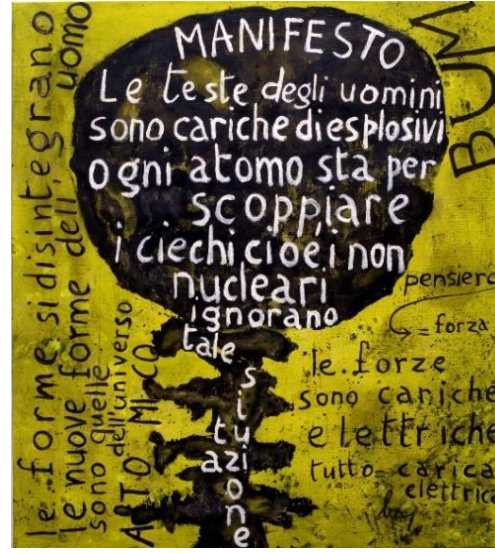 MANIFESTO
Le teste degli uomini
sono cariche di esplosivi
ogni atomo sta per
scoppiare
i ciechi cioe i non
nucleari
ignorano
tale
situazione
BUM
le forme si disintegrano
le nuove forme dell' uomo
sono quelle
dell'universo
ATOMICO
pensiero
= forza
le forze
sono cariche
elettriche
tutto = carica
elettrica